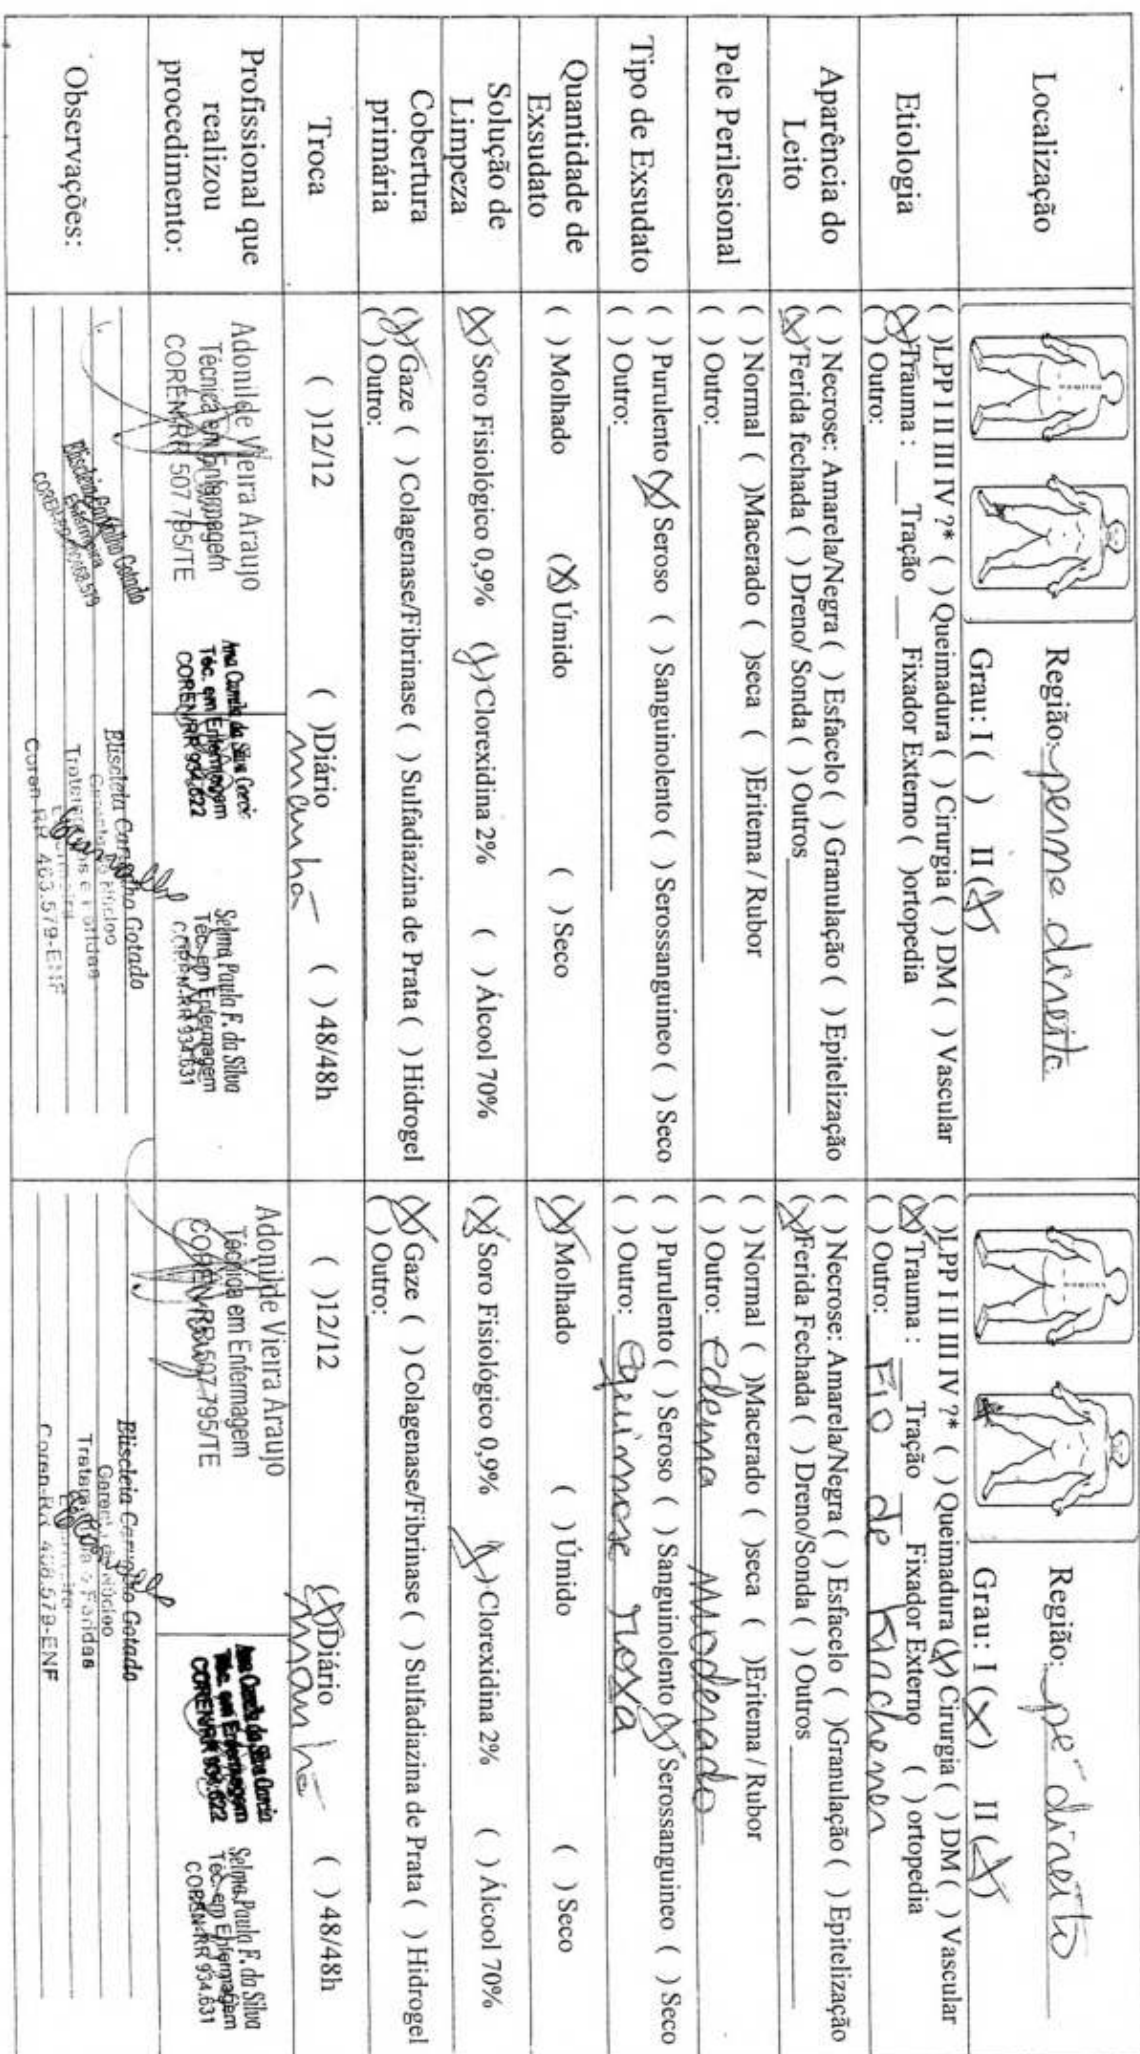 Localização
Região: perna direita
Grau: I ( ) II (X)
Região: pé direito
Grau: I (X) II (X)
Etiologia
( )LPP I II III IV ?* ( ) Queimadura ( ) Cirurgia ( ) DM ( ) Vascular
(X)Trauma : ___ Tração ___ Fixador Externo ( )ortopedia
( ) Outro:
( )LPP I II III IV ?* ( ) Queimadura (X) Cirurgia ( ) DM ( ) Vascular
(X) Trauma : ___ Tração ___ Fixador Externo ( ) ortopedia
( ) Outro: Fio de Kirchener
Aparência do
Leito
( ) Necrose: Amarela/Negra ( ) Esfacelo ( ) Granulação ( ) Epitelização
(X) Ferida fechada ( ) Dreno/ Sonda ( ) Outros
( ) Necrose: Amarela/Negra ( ) Esfacelo ( )Granulação ( ) Epitelização
(X)Ferida Fechada ( ) Dreno/Sonda ( ) Outros
Pele Perilesional
( ) Normal ( )Macerado ( )seca ( )Eritema / Rubor
( ) Outro:
( ) Normal ( )Macerado ( )seca ( )Eritema / Rubor
( ) Outro: edema moderado
Tipo de Exsudato
( ) Purulento (X) Seroso ( ) Sanguinolento ( ) Serossanguineo ( ) Seco
( ) Outro:
( ) Purulento ( ) Seroso ( ) Sanguinolento (X) Serossanguineo ( ) Seco
( ) Outro: equimose roxa
Quantidade de
Exsudato
( ) Molhado (X) Úmido ( ) Seco
(X) Molhado ( ) Úmido ( ) Seco
Solução de
Limpeza
(X) Soro Fisiológico 0,9% (X) Clorexidina 2% ( ) Álcool 70%
(X) Soro Fisiológico 0,9% (X) Clorexidina 2% ( ) Álcool 70%
Cobertura
primária
(X) Gaze ( ) Colagenase/Fibrinase ( ) Sulfadiazina de Prata ( ) Hidrogel
( ) Outro:
(X) Gaze ( ) Colagenase/Fibrinase ( ) Sulfadiazina de Prata ( ) Hidrogel
( ) Outro:
Troca
( )12/12 ( )Diário ( ) 48/48h
manhã
( )12/12 (X)Diário ( ) 48/48h
manhã
Profissional que
realizou
procedimento:
Adonilde Vieira Araujo
Técnica em Enfermagem
COREN/RR 507.795/TE
Téc. em Enfermagem
COREN/RR 934.622
Selma Paula F. da Silva
Téc. em Enfermagem
COREN-RR 934.631
Adonilde Vieira Araujo
Técnica em Enfermagem
COREN/RR 507.795/TE
COREN/RR 934.622
Selma Paula F. da Silva
Téc. em Enfermagem
COREN-RR 934.631
Observações:
Enfermeira
Gotado
Coren-RR
Gotado
579-ENF